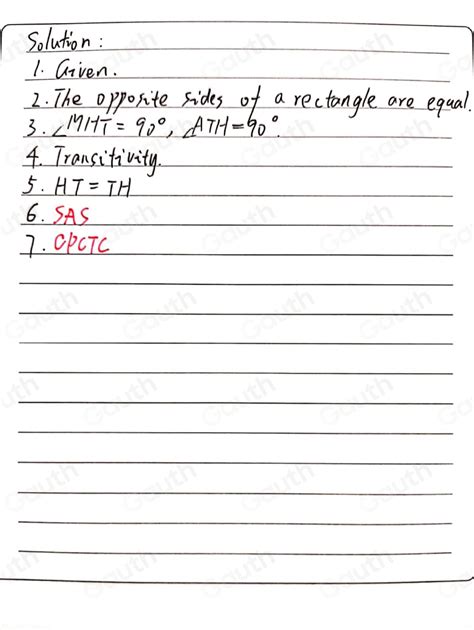 Solution:
1. Given.
2. The opposite sides of a rectangle are equal.
3. ∠MHT = 90°, ∠ATH = 90°.
4. Transitivity.
5. HT = TH
6. SAS
7. CPCTC